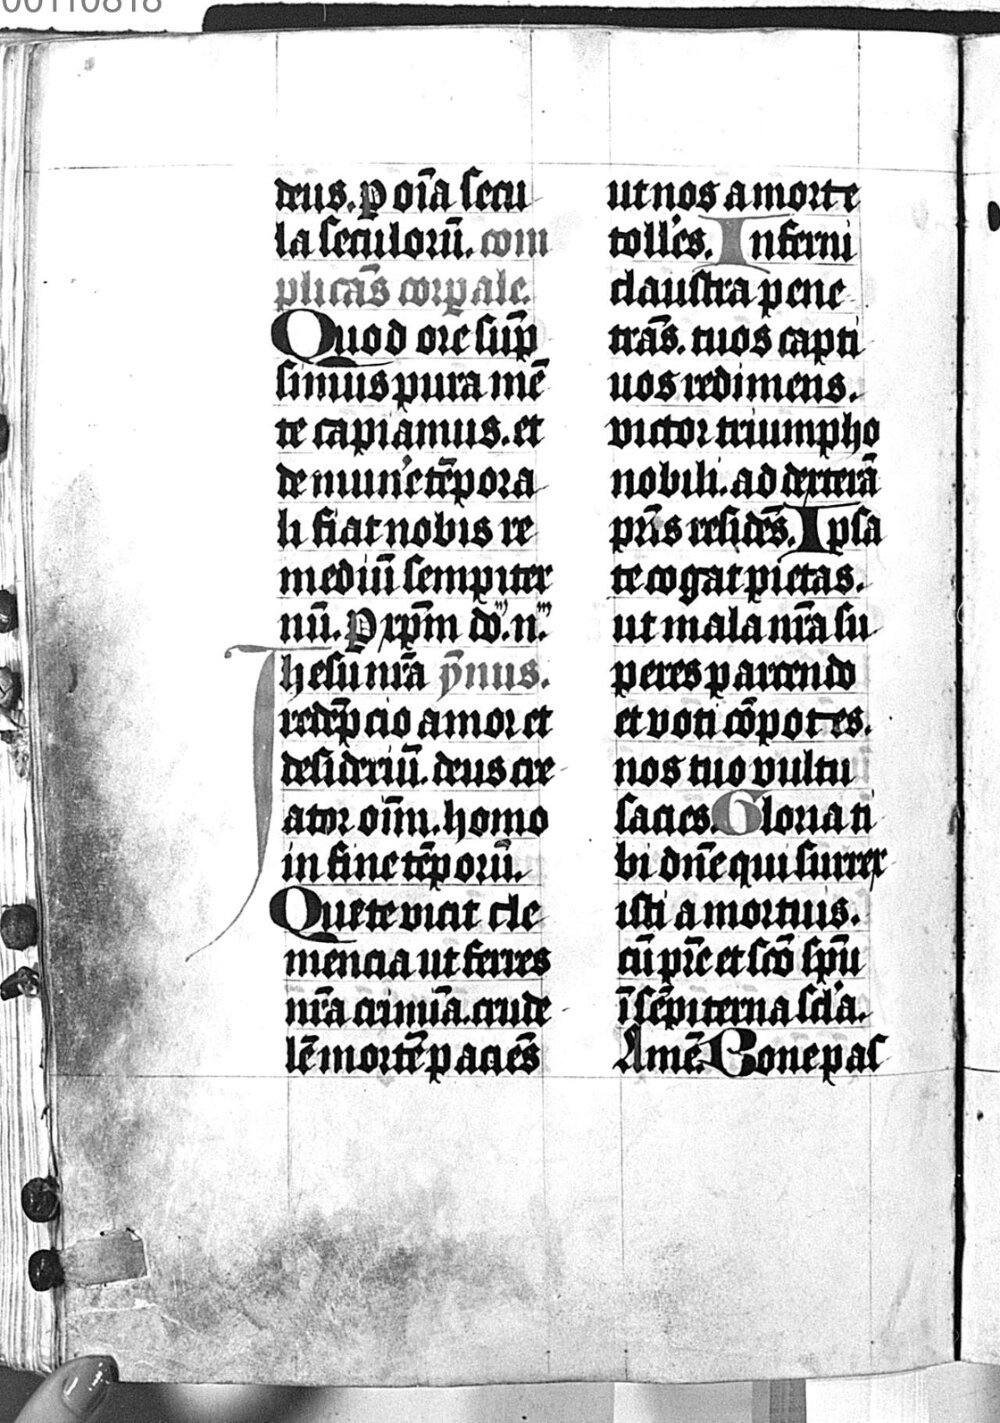 00110818
deus. p om̄a secu
la seculorū. com
plicās corpale.
Quod ore sūp
simus pura mē
te capiamus. et
de mune᷒ tēpora
li fiat nobis re
mediū sempiter
nū. P xp̄m do᷒. n᷒.
Ihesu nr̄a ȳnus.
redēpcio amor et
desideriū. deus cre
ator om̄m. homo
in fine tēporū.
Que te vicit cle
mencia ut ferres
nr̄a crimīa. crude
lē mortē paciēs
ut nos a morte
toll᷒es. Inferni
claustra pene
trās. tuos capti
uos redimens.
victor triumpho
nobili. ad dexterā
pr̄is residēs. Ipsa
te cogat pietas.
ut mala nr̄a su
peres parcendo
et voti cōpotes.
nos tuo vultu
sacies. Gloria ti
bi dn̄e qui surrex
isti a mortuis.
cū pr̄e et sc̄o sp̄u
ī sēpiterna sc̄la.
Amē. Bone pas